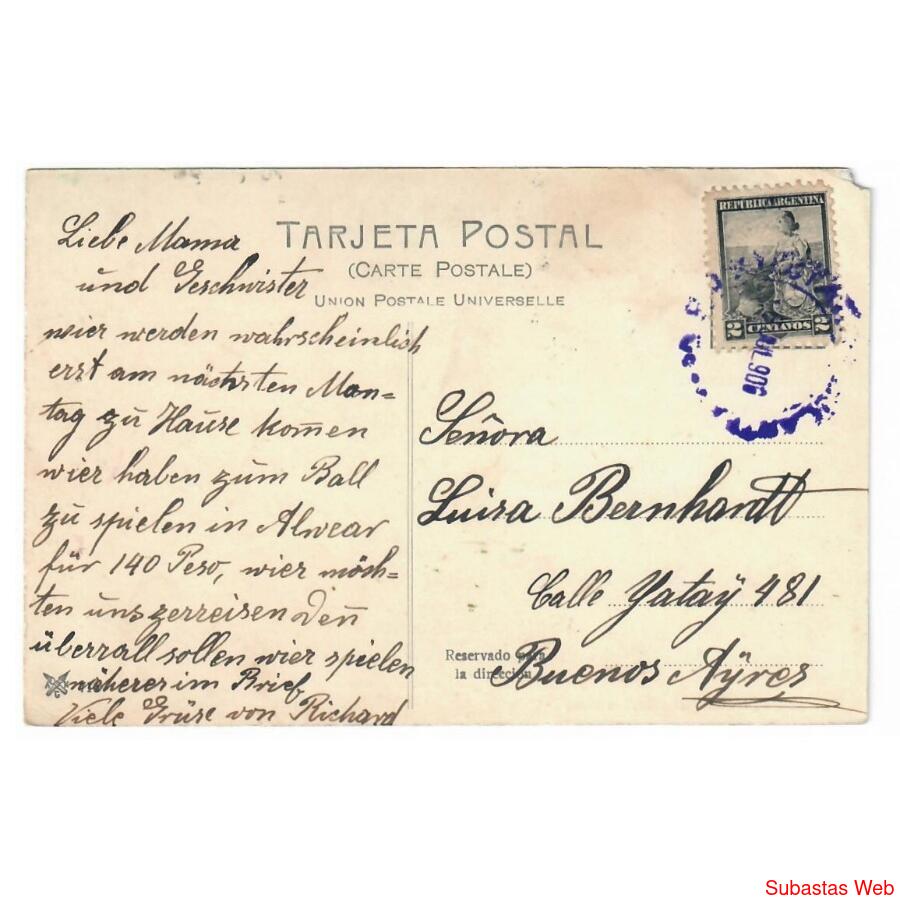 TARJETA POSTAL
(CARTE POSTALE)
UNION POSTALE UNIVERSELLE
REPUBLICA ARGENTINA
2 CENTAVOS 2
JUL 906
Liebe Mama
und Geschwister
wier werden wahrscheinlich
erst am nächsten Mon=
tag zu Hause kom̅en
wier haben zum Ball
zu spielen in Alwear
für 140 Peso, wier möch=
ten uns zerreisen Den̅
überrall sollen wier spielen
näheres im Brief
Viele Grüse von Richard
Señora
Luisa Bernhardt
Calle Yataÿ 481
Reservado para
la direccion
Buenos Aÿres
Subastas Web